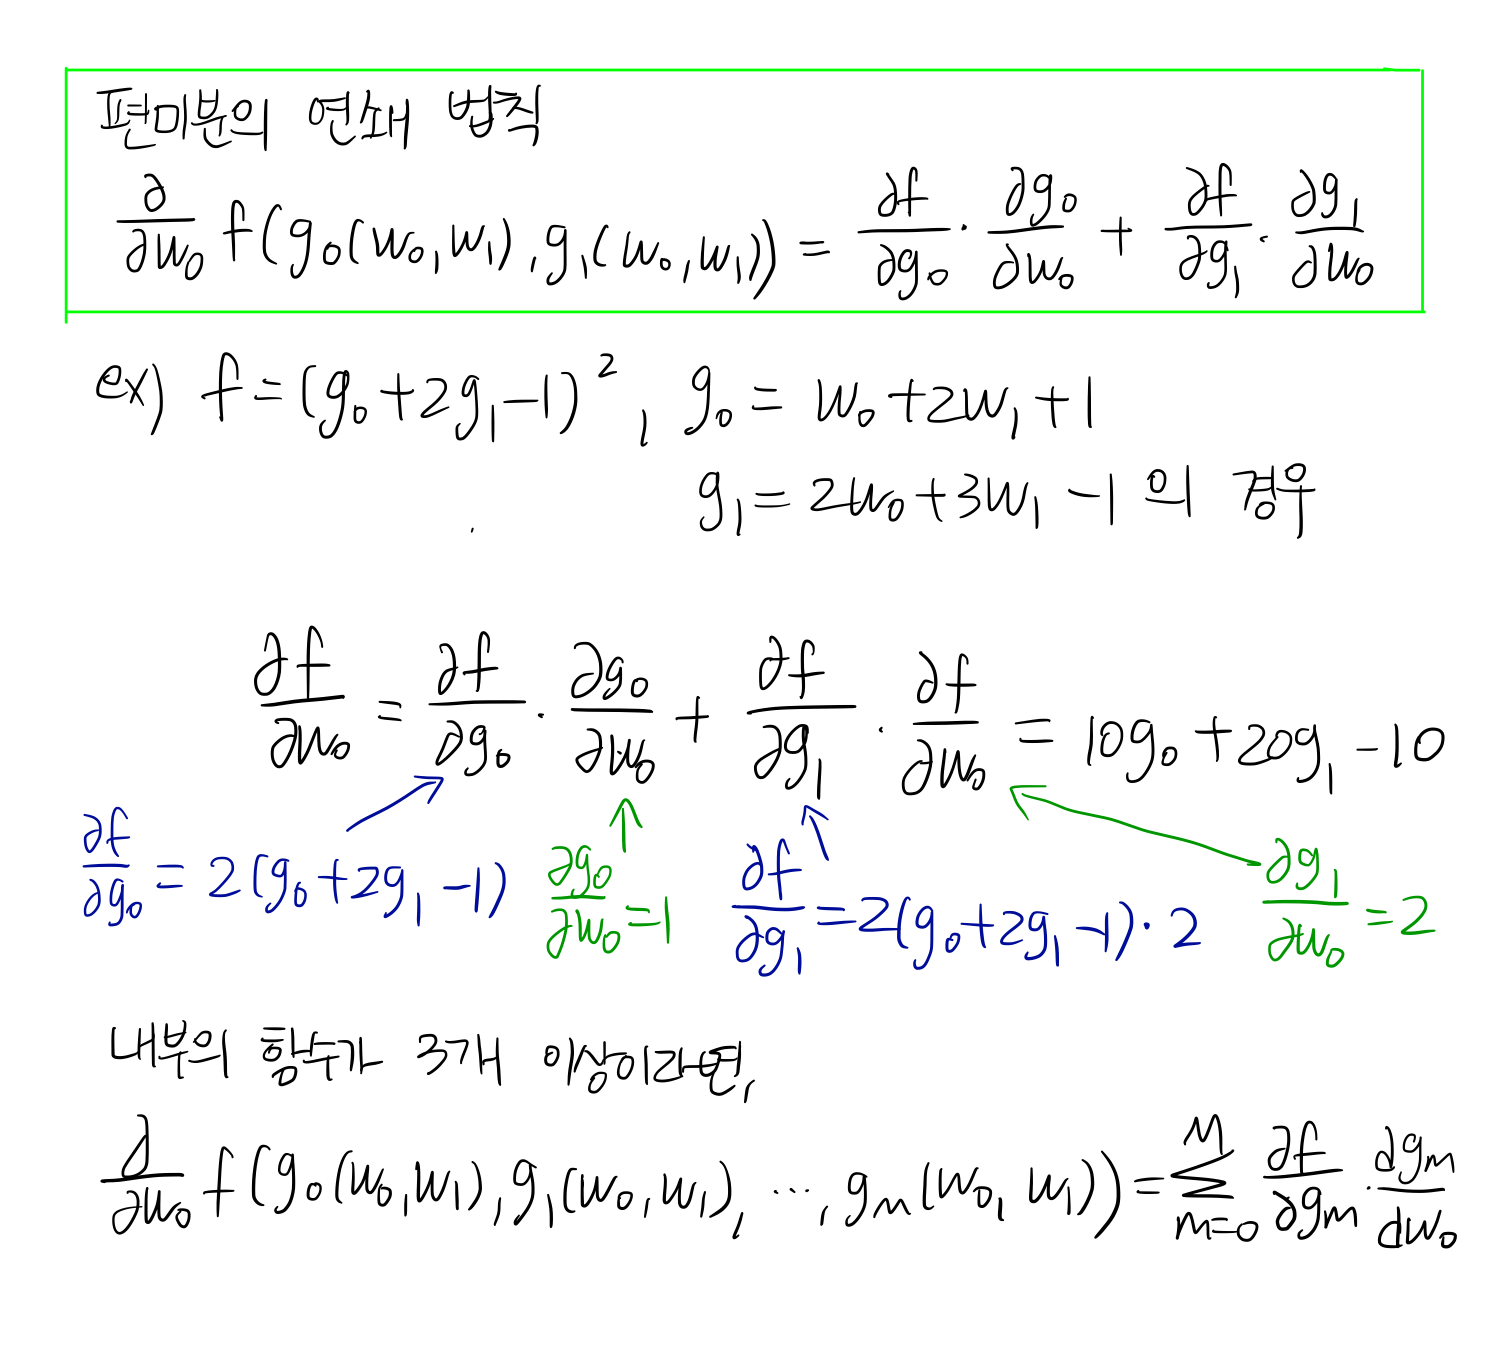 편미분의 연쇄 법칙
∂/∂w₀ f(g₀(w₀,w₁),g₁(w₀,w₁)) = ∂f/∂g₀ · ∂g₀/∂w₀ + ∂f/∂g₁ · ∂g₁/∂w₀
ex) f=(g₀+2g₁-1)², g₀ = w₀+2w₁+1
g₁=2w₀+3w₁-1 의 경우
∂f/∂w₀ = ∂f/∂g₀ · ∂g₀/∂w₀ + ∂f/∂g₁ · ∂f/∂w₀ = 10g₀+20g₁-10
∂f/∂g₀ = 2(g₀+2g₁-1) ∂g₀/∂w₀=1 ∂f/∂g₁=2(g₀+2g₁-1)·2 ∂g₁/∂w₀=2
내부의 함수가 3개 이상이라면,
∂/∂w₀ f(g₀(w₀,w₁),g₁(w₀,w₁), ⋯, gₘ(w₀,w₁))=∑ₘ₌₀ᴹ ∂f/∂gₘ · dgₘ/dw₀